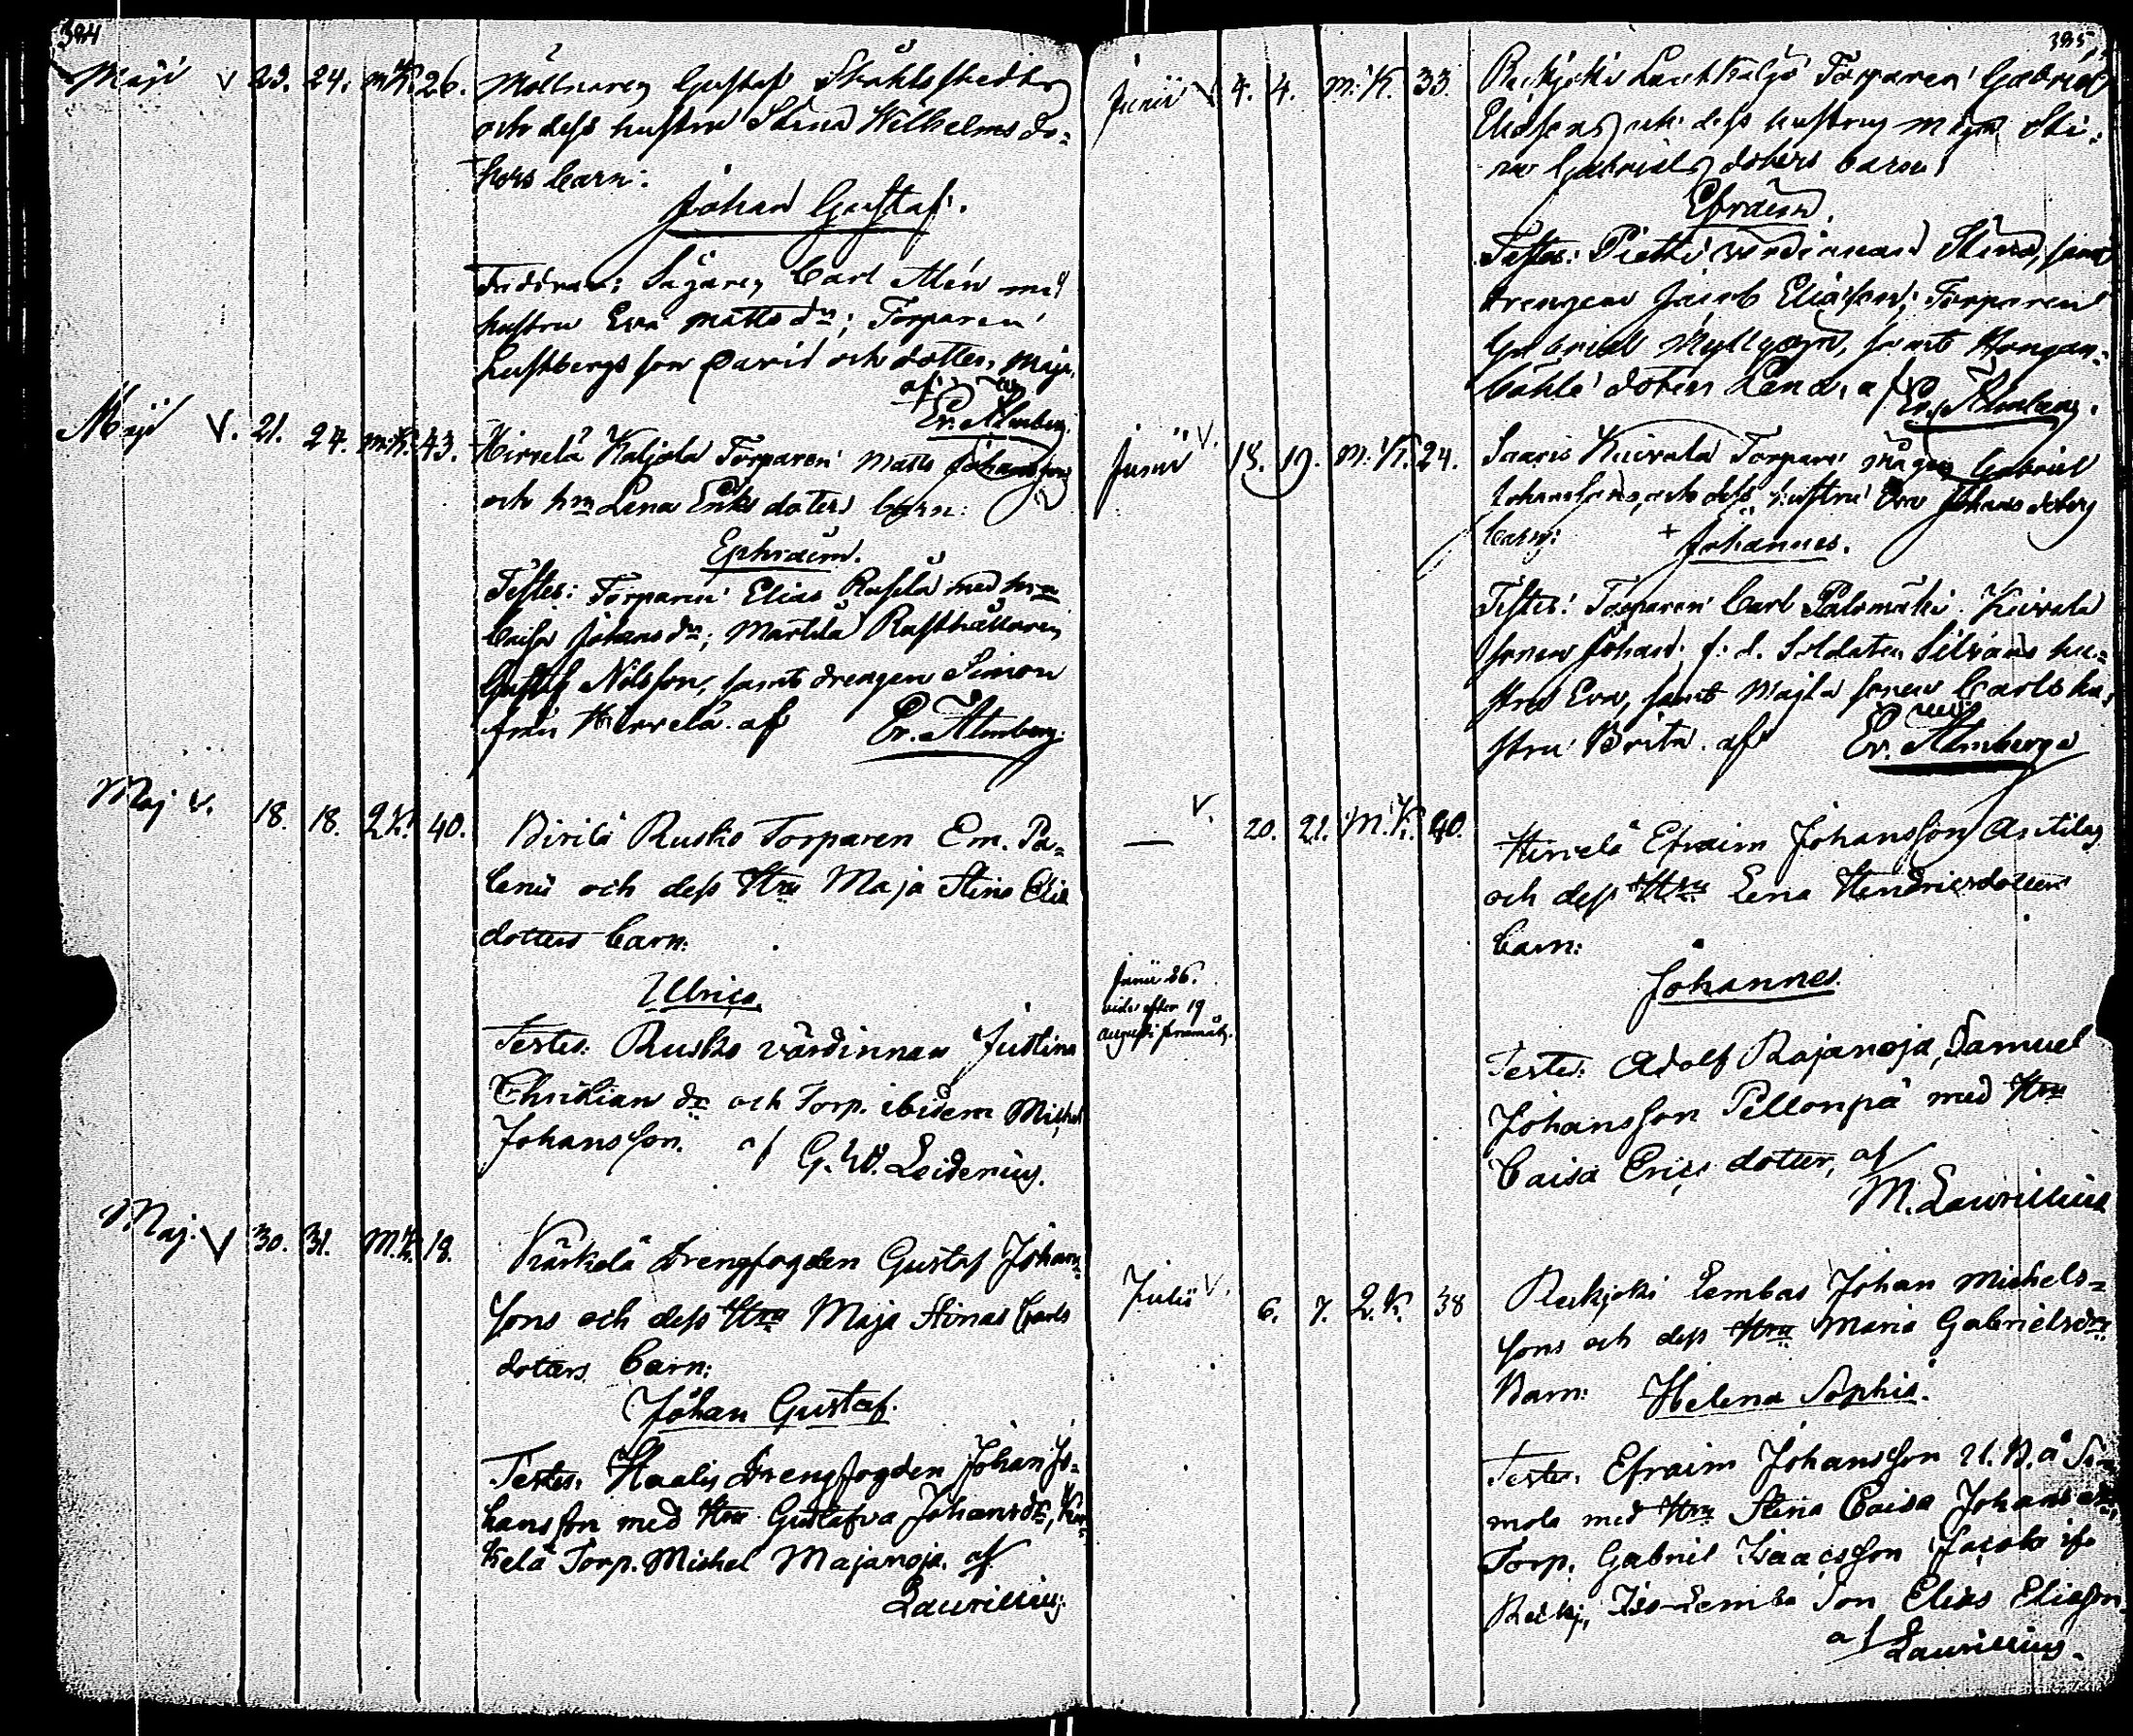 384
Maji v 23. 24. m.K. 26. Möllnaren Gustaf Ståhls
och dess hustru Stina Wilhelms do=
ters barn:
Johan Gustaf.
Sågaren Carl Alén med
hustru Eva Matts dr; Torparen
Lustbergs son David och dotter, Maja.
af
Er. Almberg.
Maji V. 21. 24. m.K. 43. Hirvelä Kaljala Torparen Matts Johansson
och hru Lena Eriks doters barn:
Ephraim.
Testes: Torparen Elias Rusela med hru
Caisa Johans dr; Marttila Rusthållaren
Gustaf Nilsson, samt drengen Simon
från Hirvelä. af Er. Almberg.
Maj v. 18. 18. Q.K. 40. Virilä Rusko Torparen Em. Pa=
lenii och dess Hru Maja Stina Elis
dotters barn:
Ulrica.
Testes: Rusko värdinnan Justina
Christian dr och Torp. ibidem Michel
Johansson. af G. W. Leidenius.
Maj. V 30. 31. M.K. 18. Kärkelä Drengfogden Gustaf Johan
sons och dess Hru Maja Stinas Carls
dotters barn:
Johan Gustaf.
Testes: Haalis Drengfogden Johan Jo=
hansson med Hru Gustafva Johansdr, Kär=
kelä Torp. Michel Majanoja. af
Laurillius.
385
Junii V. 4. 4. m.K. 33. Reikjoki Torparen Gabriel
Eliassons och dess hustru Maja Sti=
na Gabriels doters barn:
Efraim.
Testes: Pietti värdinnan Stina, samt
drengen Jacob Eliasson; Torparen
Gabriel Myllyoja, samt
doter Lena, af Er. Almberg.
Junii V. 18. 19. M.K. 24. Saaris Kiivala Torpare mågen Gabriel
Johanssons och dess hustru Eva Johans doters
barn: + Johannes.
Testes: Torparen Carl Palomäki. Kiivala
sonen Johan. f. d. Soldaten Silváns hu=
stru Eva, samt Majla sonen Carls hu=
stru Brita. af Er. Almberg
— V. 20. 21. M.K. 40. Hirvelä Efraim Johansson Anttilas
och dess Hru Lena Hendricsdotters
barn:
Johannes.
Junii 26.
vide efter 19
Augusti
Testes: Adolf Rajanoja, Samuel
Johansson Pellonpä med Hru
Caisa Erics dotter, af
M. Laurillius
Julii V. 6. 7. Q.K. 38 Reikjoki Lembas Johan Michels=
sons och dess Hru Maria Gabrielsdrs
Barn: Helena Sophia.
Testes: Efraim Johansson U. B. å
mola med Hru Stina Caisa Johans dr,
Torp. Gabriel Isaacsson
Reikj. Iso-Lemba Son Elias Eliasson.
af Laurillius.